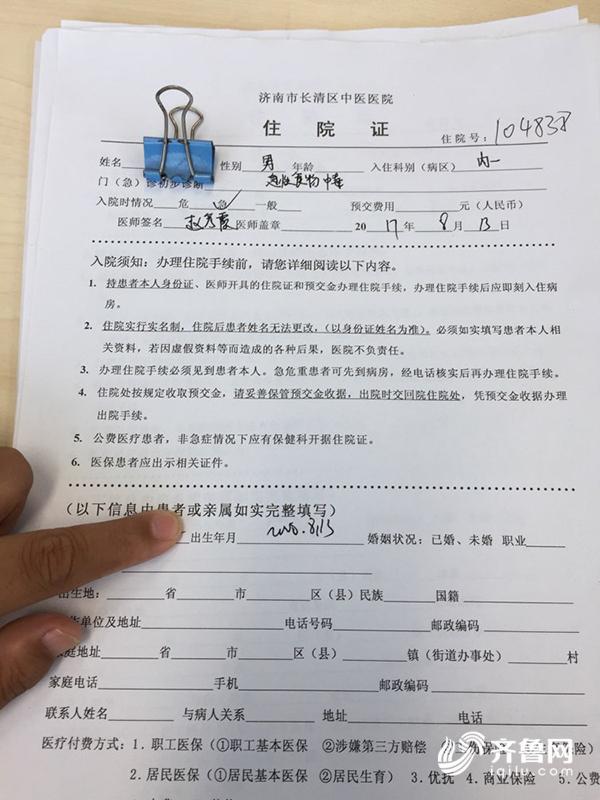 济南市长清区中医医院
住 院 证 住院号：104838
姓名 性别 男 年龄 入住科别（病区） 内一
门（急）诊初步诊断 急性食物中毒
入院时情况 危 急 一般 预交费用 元（人民币）
医师签名 医师盖章 2017年8月13日
入院须知：办理住院手续前，请您详细阅读以下内容。
1. 持患者本人身份证、医师开具的住院证和预交金办理住院手续，办理住院手续后应即刻入住病
房。
2. 住院实行实名制，住院后患者姓名无法更改，（以身份证姓名为准）。必须如实填写患者本人相
关资料，若因虚假资料等而造成的各种后果，医院不负责任。
3. 办理住院手续必须见到患者本人。急危重患者可先到病房，经电话核实后再办理住院手续。
4. 住院处按规定收取预交金，请妥善保管预交金收据，出院时交回院住院处，凭预交金收据办理
出院手续。
5. 公费医疗患者，非急症情况下应有保健科开据住院证。
6. 医保患者应出示相关证件。
（以下信息由患者或亲属如实完整填写）
出生年月 婚姻状况：已婚、未婚 职业
出生地： 省 市 区（县）民族 国籍
作单位及地址 电话号码 邮政编码
家庭地址 省 市 区（县） 镇（街道办事处） 村
家庭电话 手机 邮政编码
联系人姓名 与病人关系 地址 电话
医疗付费方式：1. 职工医保（①职工基本医保 ②涉嫌第三方赔偿 保险）
2. 居民医保（①居民基本医保 ②居民生育） 3. 优抚 4. 商业保险 5. 公费
齐鲁网
iqilu.com